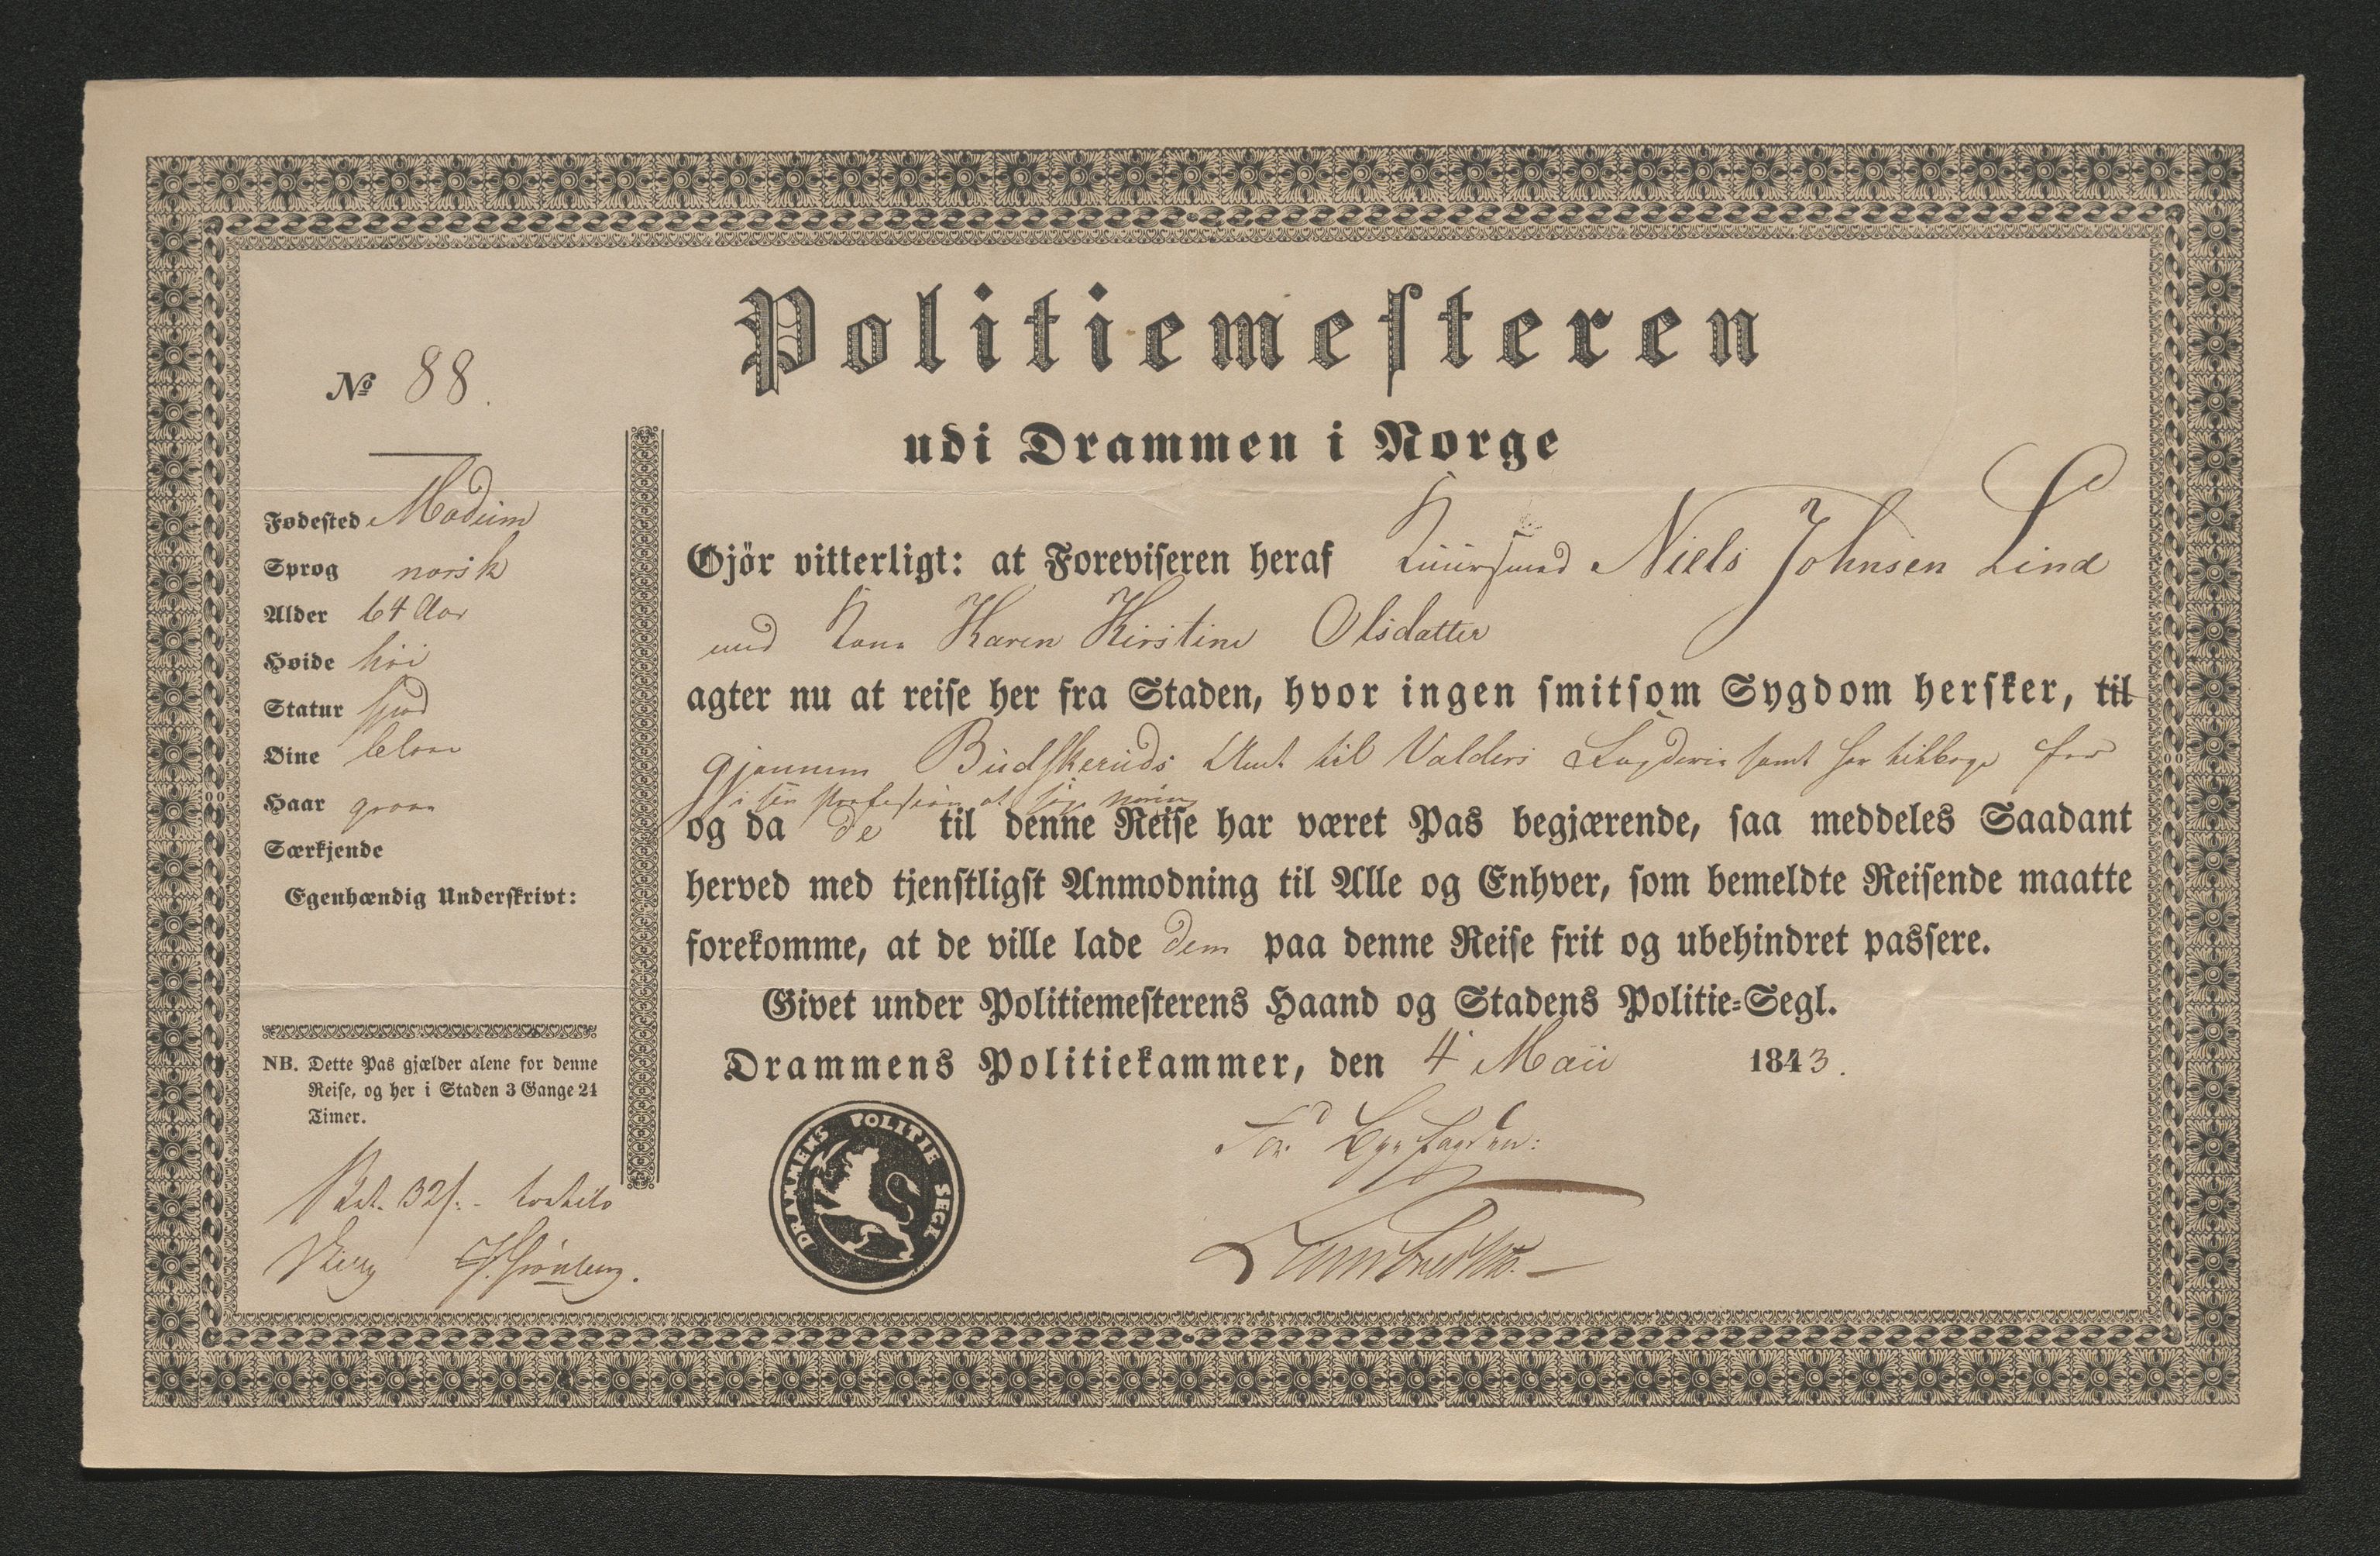 Politiemesteren
udi Drammen i Norge
No 88.
Fødested Modum
Sprog norsk
Alder 64 Aar
Høide høi
Statur spæd
Øine blaae
Haar graae
Særkjende
Egenhændig Underskrivt:
NB. Dette Pas gjælder alene for denne
Reise, og her i Staden 3 Gange 24
Timer.
32
Gjör vitterligt: at Foreviseren heraf Kuursmed Niels Johnsen Lind
med Kone Karen Kirstine Olsdatter
agter nu at reise her fra Staden, hvor ingen smitsom Sygdom hersker, til
gjennem Budskeruds Amt til Valders Fogderie samt her tilbage for
i sin Profession at søge
og da de til denne Reise har været Pas begjærende, saa meddeles Saadant
herved med tjenstligst Anmodning til Alle og Enhver, som bemeldte Reisende maatte
forekomme, at de ville lade dem paa denne Reise frit og ubehindret passere.
Givet under Politiemesterens Haand og Stadens Politie-Segl.
Drammens Politiekammer, den 4 Maii 1843.
DRAMMENS POLITIE SEGL